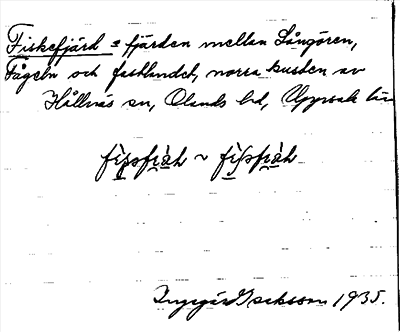 Fiskefjärd = fjärden mellan Långören,
Fågeln och fastlandet, norra kusten av
Hållnäs sn, Olands hd, Uppsala län
Ingegärd Isaksson 1935.